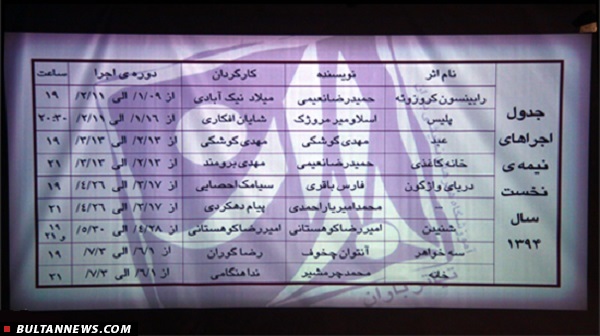 جدول
اجراهای
نیمه ی
نخست
سال
۱۳۹۴
نام اثر نویسنده کارگردان دوره ی اجرا ساعت
رابینسون کروزوئه حمیدرضا نعیمی میلاد نیک آبادی از ۱/۰۹/ الی ۲/۱۱/ ۱۹
پلیس اسلاومیر مروژک شایان افکاری از ۱/۱۶/ الی ۲/۱۹/ ۲۰:۳۰
عید مهدی کوشکی مهدی کوشکی از ۲/۱۳/ الی ۳/۱۳/ ۱۹
خانه کاغذی حمیدرضا نعیمی مهدی برومند از ۲/۱۳/ الی ۳/۱۳/ ۲۱
دریای واژگون فارس باقری سیامک احصایی از ۳/۱۷/ الی ۴/۲۶/ ۱۹
– محمدامیر یاراحمدی پیام دهکردی از ۳/۱۷/ الی ۴/۲۶/ ۲۱
شنیدن امیررضا کوهستانی امیررضا کوهستانی از ۴/۲۸/ الی ۵/۳۰/ ۱۹ و
سه خواهر آنتوان چخوف رضا گوران از ۶/۱/ الی ۷/۳/ ۱۹
خانه محمد چرمشیر ندا هنگامی از ۶/۱/ الی ۷/۳/ ۲۱
باران
BULTANNEWS.COM